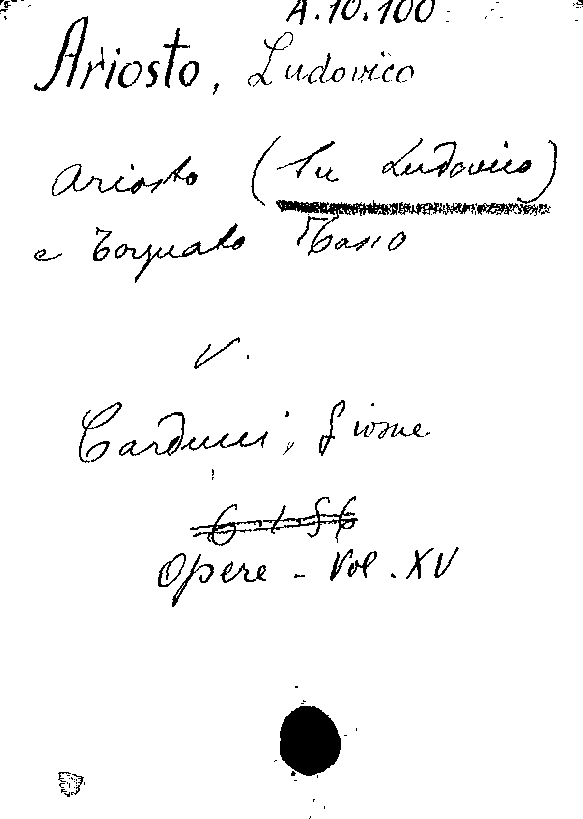 A.10.100
Ariosto, Ludovico
Ariosto (Su Ludovico)
e Torquato Tasso
V.
Carducci, Giosue
6.1.56
Opere - Vol. XV